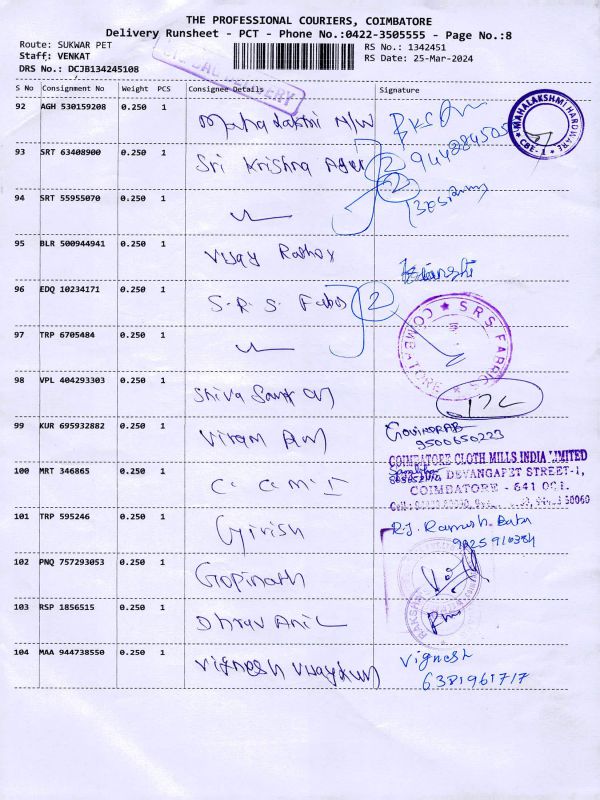 THE PROFESSIONAL COURIERS, COIMBATORE
Delivery Runsheet - PCT - Phone No.:0422-3505555 - Page No.:8
Route: SUKWAR PET
Staff: VENKAT
DRS No.: DCJB134245108
RS No.: 1342451
RS Date: 25-Mar-2024
S No Consignment No Weight PCS Consignee Details Signature
92 AGH 530159208 0.250 1 Mahalakshmi H/W
MAHALAKSHMI HARDWARE CBE-1
93 SRT 63408900 0.250 1 Sri Krishna 2
94 SRT 55955070 0.250 1 2
95 BLR 500944941 0.250 1 Vijay
96 EDQ 10234171 0.250 1 S.R.S. Fabs 2
97 TRP 6705484 0.250 1
SRS FABRICS COIMBATORE
98 VPL 404293303 0.250 1 Shiva
99 KUR 695932882 0.250 1 GOVINDRAB
9500650223
100 MRT 346865 0.250 1 C.C.M.I
COIMBATORE CLOTH MILLS INDIA LIMITED
DEVANGAPET STREET-1,
COIMBATORE - 641 001.
101 TRP 595246 0.250 1 Girish R.J. Ramesh Babu
102 PNQ 757293053 0.250 1 Gopinath
103 RSP 1856515 0.250 1 Dhruv Anil
104 MAA 944738550 0.250 1 Vignesh Vijaykum Vignesh
6381961717